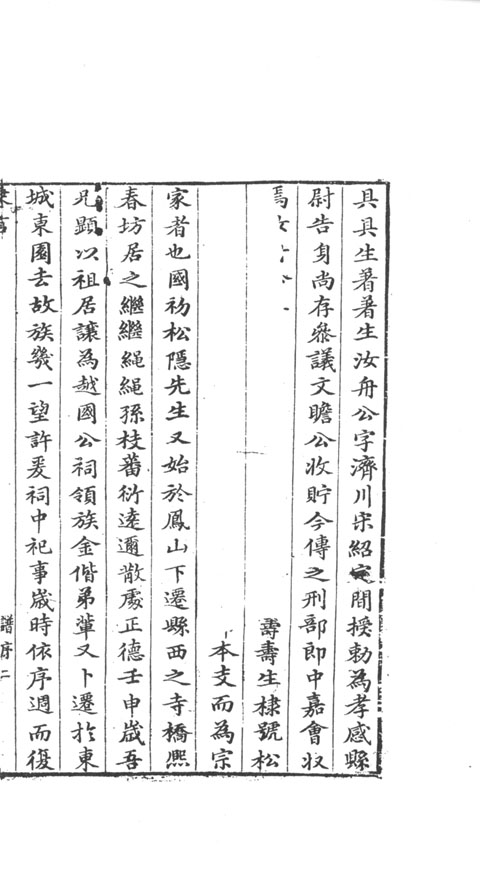 具具生著著生汝舟公字濟川宋紹定間授勑為孝感縣
尉告身尚存參議文瞻公收貯今傳之刑部郎中嘉會収
壽壽生棣號松
本支而為宗
家者也國初松隱先生又始於鳳山下遷縣西之寺橋熙
春坊居之繼繼繩繩孫枝蕃衍逹邇散處正德壬申歲吾
兄顯以祖居讓為越國公祠領族金偕弟輩又卜遷於東
城東園去故族幾一望許爰祠中祀事歲時依序週而復
譜序二